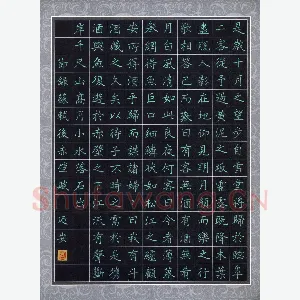 是歲十月之望步自雪堂將歸於臨皋
二客從予過黃泥之坂霜露既降木葉
盡脫人影在地仰見明月顧而樂之行
歌相答已而嘆曰有客無酒有酒無肴
月白風清如此良夜何客曰今者薄暮
舉網得魚巨口細鱗狀如松江之鱸顧
安所得酒乎歸而謀諸婦婦曰我有斗
酒藏之久矣以待子不時之需於是攜
酒與魚復遊於赤壁之下江流有聲斷
岸千尺山高月小水落石出
節錄蘇軾後赤壁賦